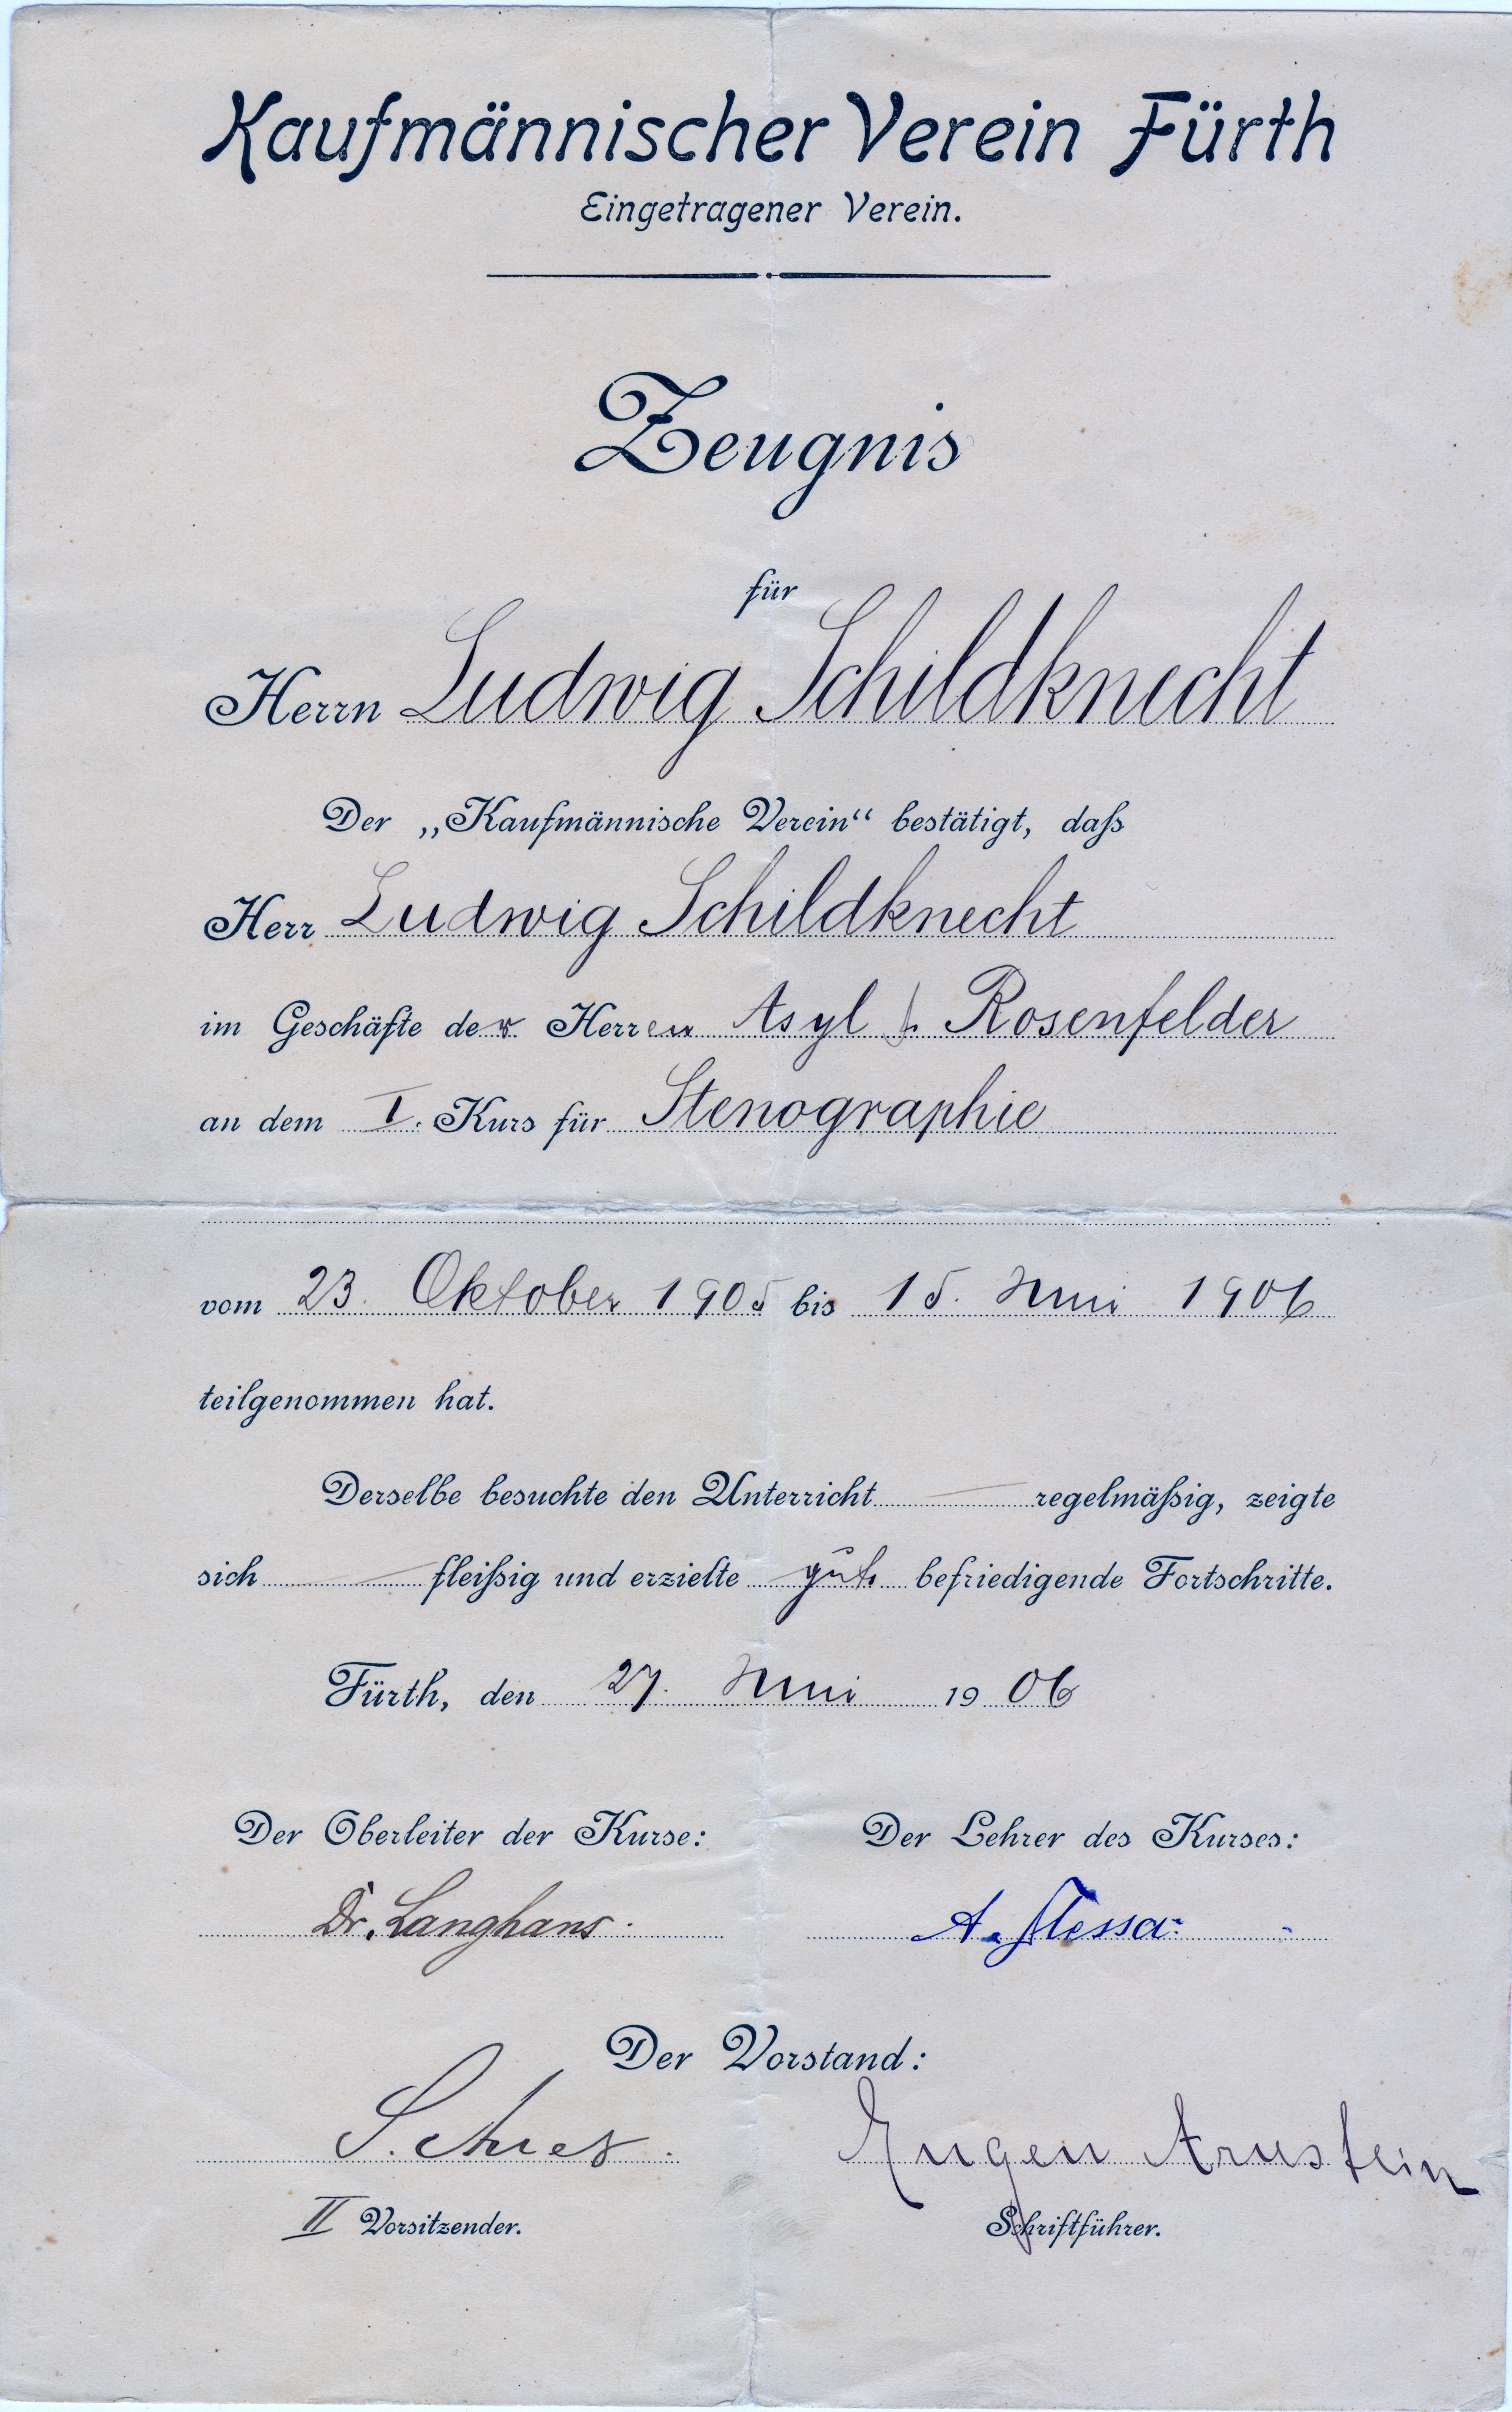 Kaufmännischer Verein Fürth
Eingetragener Verein.
Zeugnis
für
Herrn Ludwig Schildknecht
Der „Kaufmännische Verein“ bestätigt, daß
Herr Ludwig Schildknecht
im Geschäfte der Herren Asyl & Rosenfelder
an dem I. Kurs für Stenographie
vom 23. Oktober 1905 bis 15. Juni 1906
teilgenommen hat.
Derselbe besuchte den Unterricht — regelmäßig, zeigte
sich — fleißig und erzielte gut befriedigende Fortschritte.
Fürth, den 27. Juni 1906
Der Oberleiter der Kurse: Der Lehrer des Kurses:
Dr. Langhans. A.
Der Vorstand:
Eugen Arnstein
II Vorsitzender. Schriftführer.